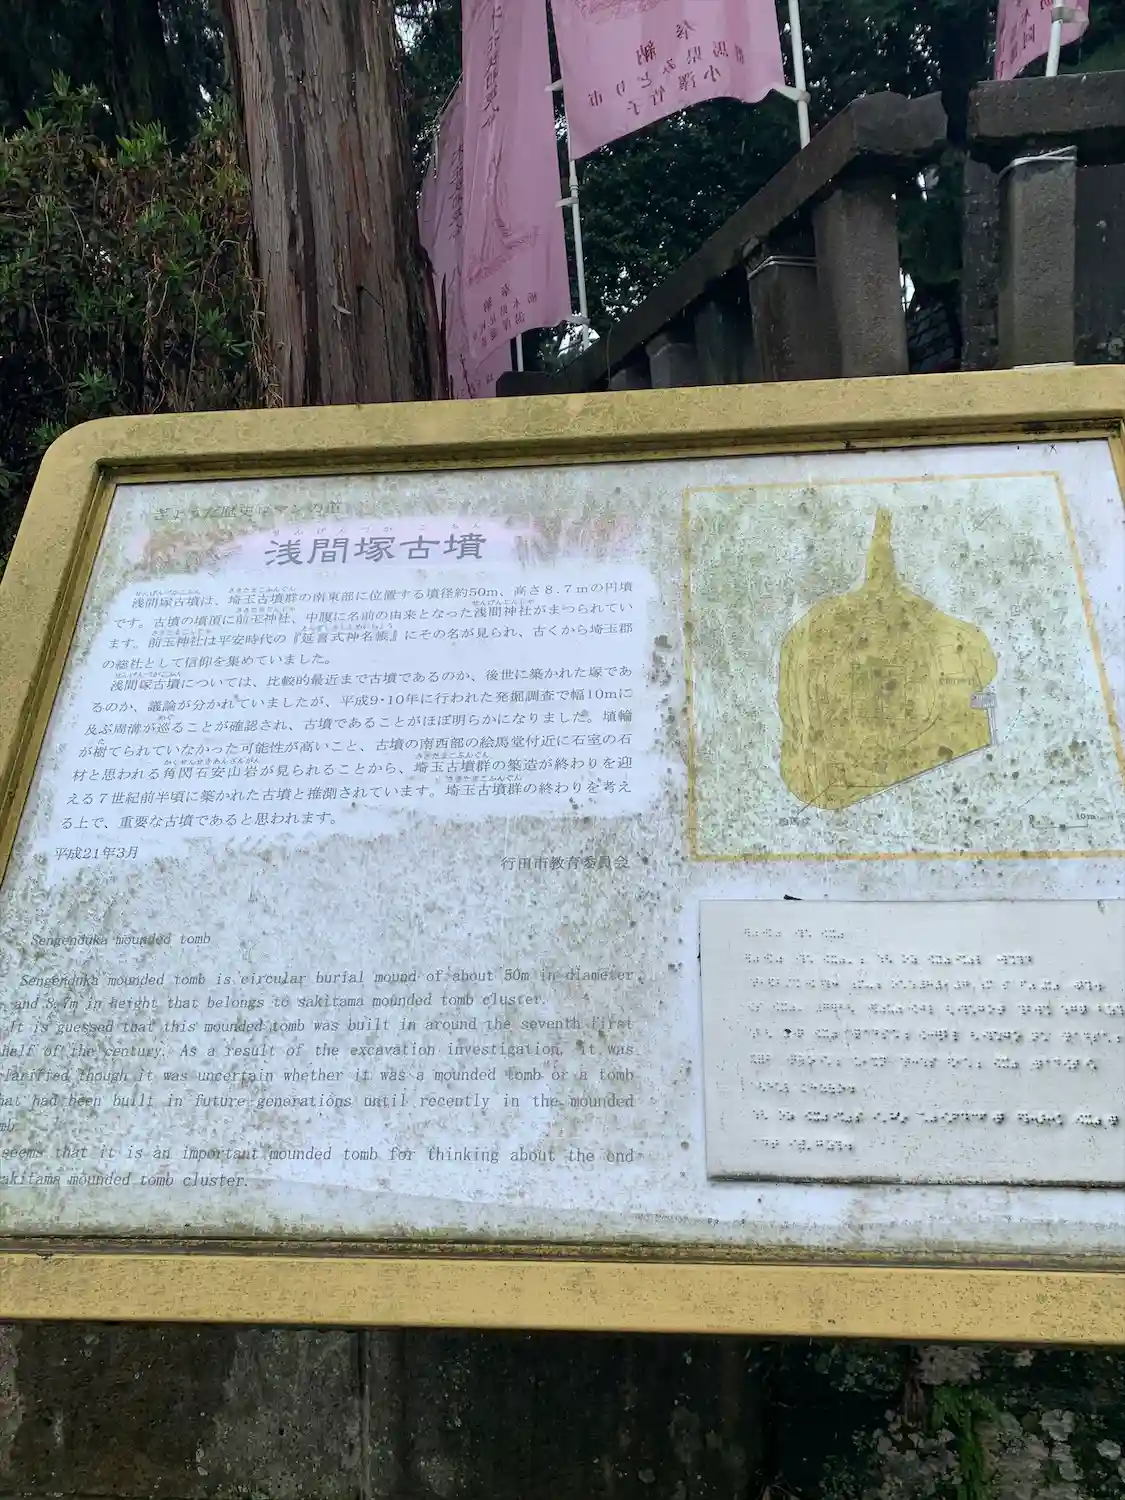 奉納
群馬県みどり市
小澤竹子
ぎょうだ歴史ロマンの道
せんげんづかこふん
浅間塚古墳
浅間塚古墳は、埼玉古墳群の南東部に位置する墳径約50m、高さ8.7mの円墳
です。古墳の墳頂に前玉神社、中腹に名前の由来となった浅間神社がまつられてい
ます。前玉神社は平安時代の『延喜式神名帳』にその名が見られ、古くから埼玉郡
の総社として信仰を集めていました。
浅間塚古墳については、比較的最近まで古墳であるのか、後世に築かれた塚であ
るのか、議論が分かれていましたが、平成9・10年に行われた発掘調査で幅10mに
及ぶ周溝が巡ることが確認され、古墳であることがほぼ明らかになりました。埴輪
が樹てられていなかった可能性が高いこと、古墳の南西部の絵馬堂付近に石室の石
材と思われる角閃石安山岩が見られることから、埼玉古墳群の築造が終わりを迎
える7世紀前半頃に築かれた古墳と推測されています。埼玉古墳群の終わりを考え
る上で、重要な古墳であると思われます。
平成21年3月
行田市教育委員会
Sengenduka mounded tomb
Sengenduka mounded tomb is circular burial mound of about 50m in diameter
and 8.7m in height that belongs to sakitama mounded tomb cluster.
It is guessed that this mounded tomb was built in around the seventh first
half of the century. As a result of the excavation investigation, it was
larified though it was uncertain whether it was a mounded tomb or a tomb
hat had been built in future generations until recently in the mounded
mb.
seems that it is an important mounded tomb for thinking about the end
akitama mounded tomb cluster.
10m